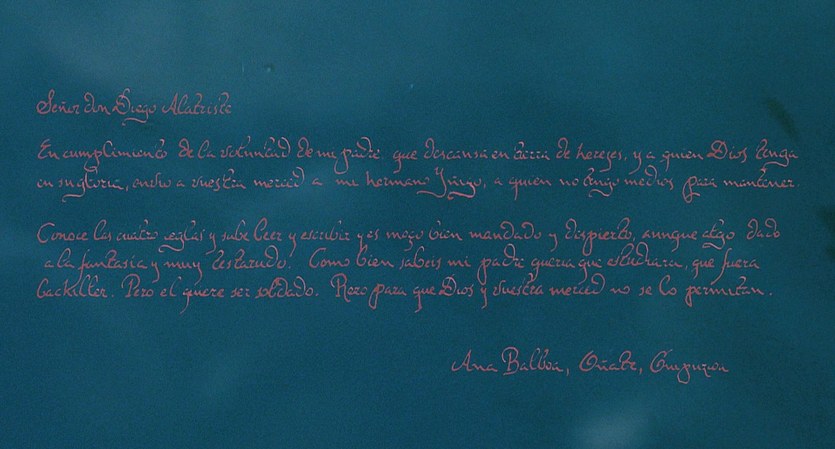 Señor don Diego Alatriste
En cumplimiento de la voluntad de mi padre, que descansa en tierra de herejes, y a quien Dios tenga
en su gloria, envio a vuestra merced a mi hermano Iñigo, a quien no tengo medios para mantener.
Conoce las cuatro reglas y sabe leer y escribir y es moço bien mandado y dispierto, aunque algo dado
a la fantasia y muy testarudo. Como bien sabeis mi padre queria que estudiara, que fuera
bachiller. Pero el quiere ser soldado. Rezo para que Dios y vuestra merced no se lo permitan.
Ana Balboa, Oñate, Guipuzcoa